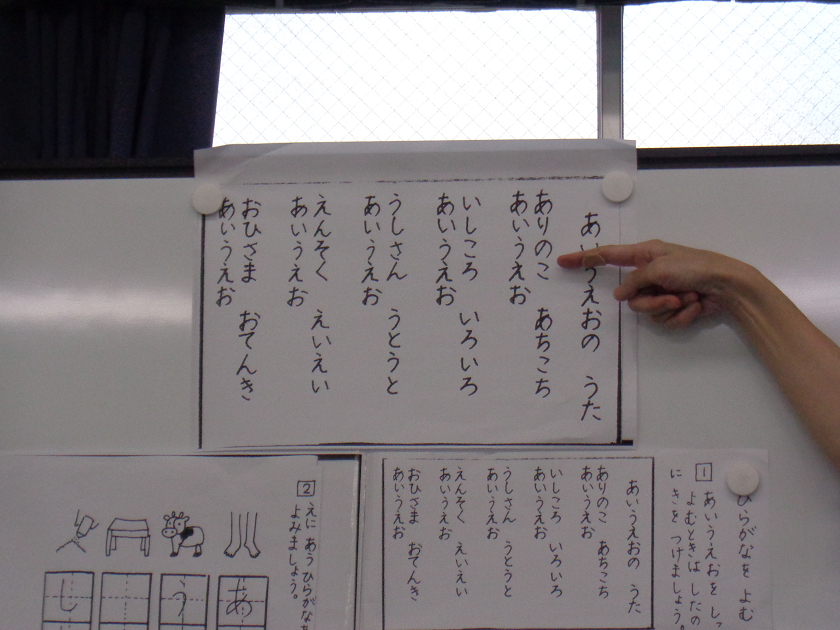 あいうえおの うた
ありのこ あちこち
あいうえお
いしころ いろいろ
あいうえお
うしさん うとうと
あいうえお
えんそく えいえい
あいうえお
おひさま おてんき
あいうえお
ひらがなを よむ
1 あいうえおを しっ
よむときは したの
に きを つけましょう。
あいうえおの うた
ありのこ あちこち
あいうえお
いしころ いろいろ
あいうえお
うしさん うとうと
あいうえお
えんそく えいえい
あいうえお
おひさま おてんき
あいうえお
2 えに あう ひらがな
よみましょう。
あ
う
し